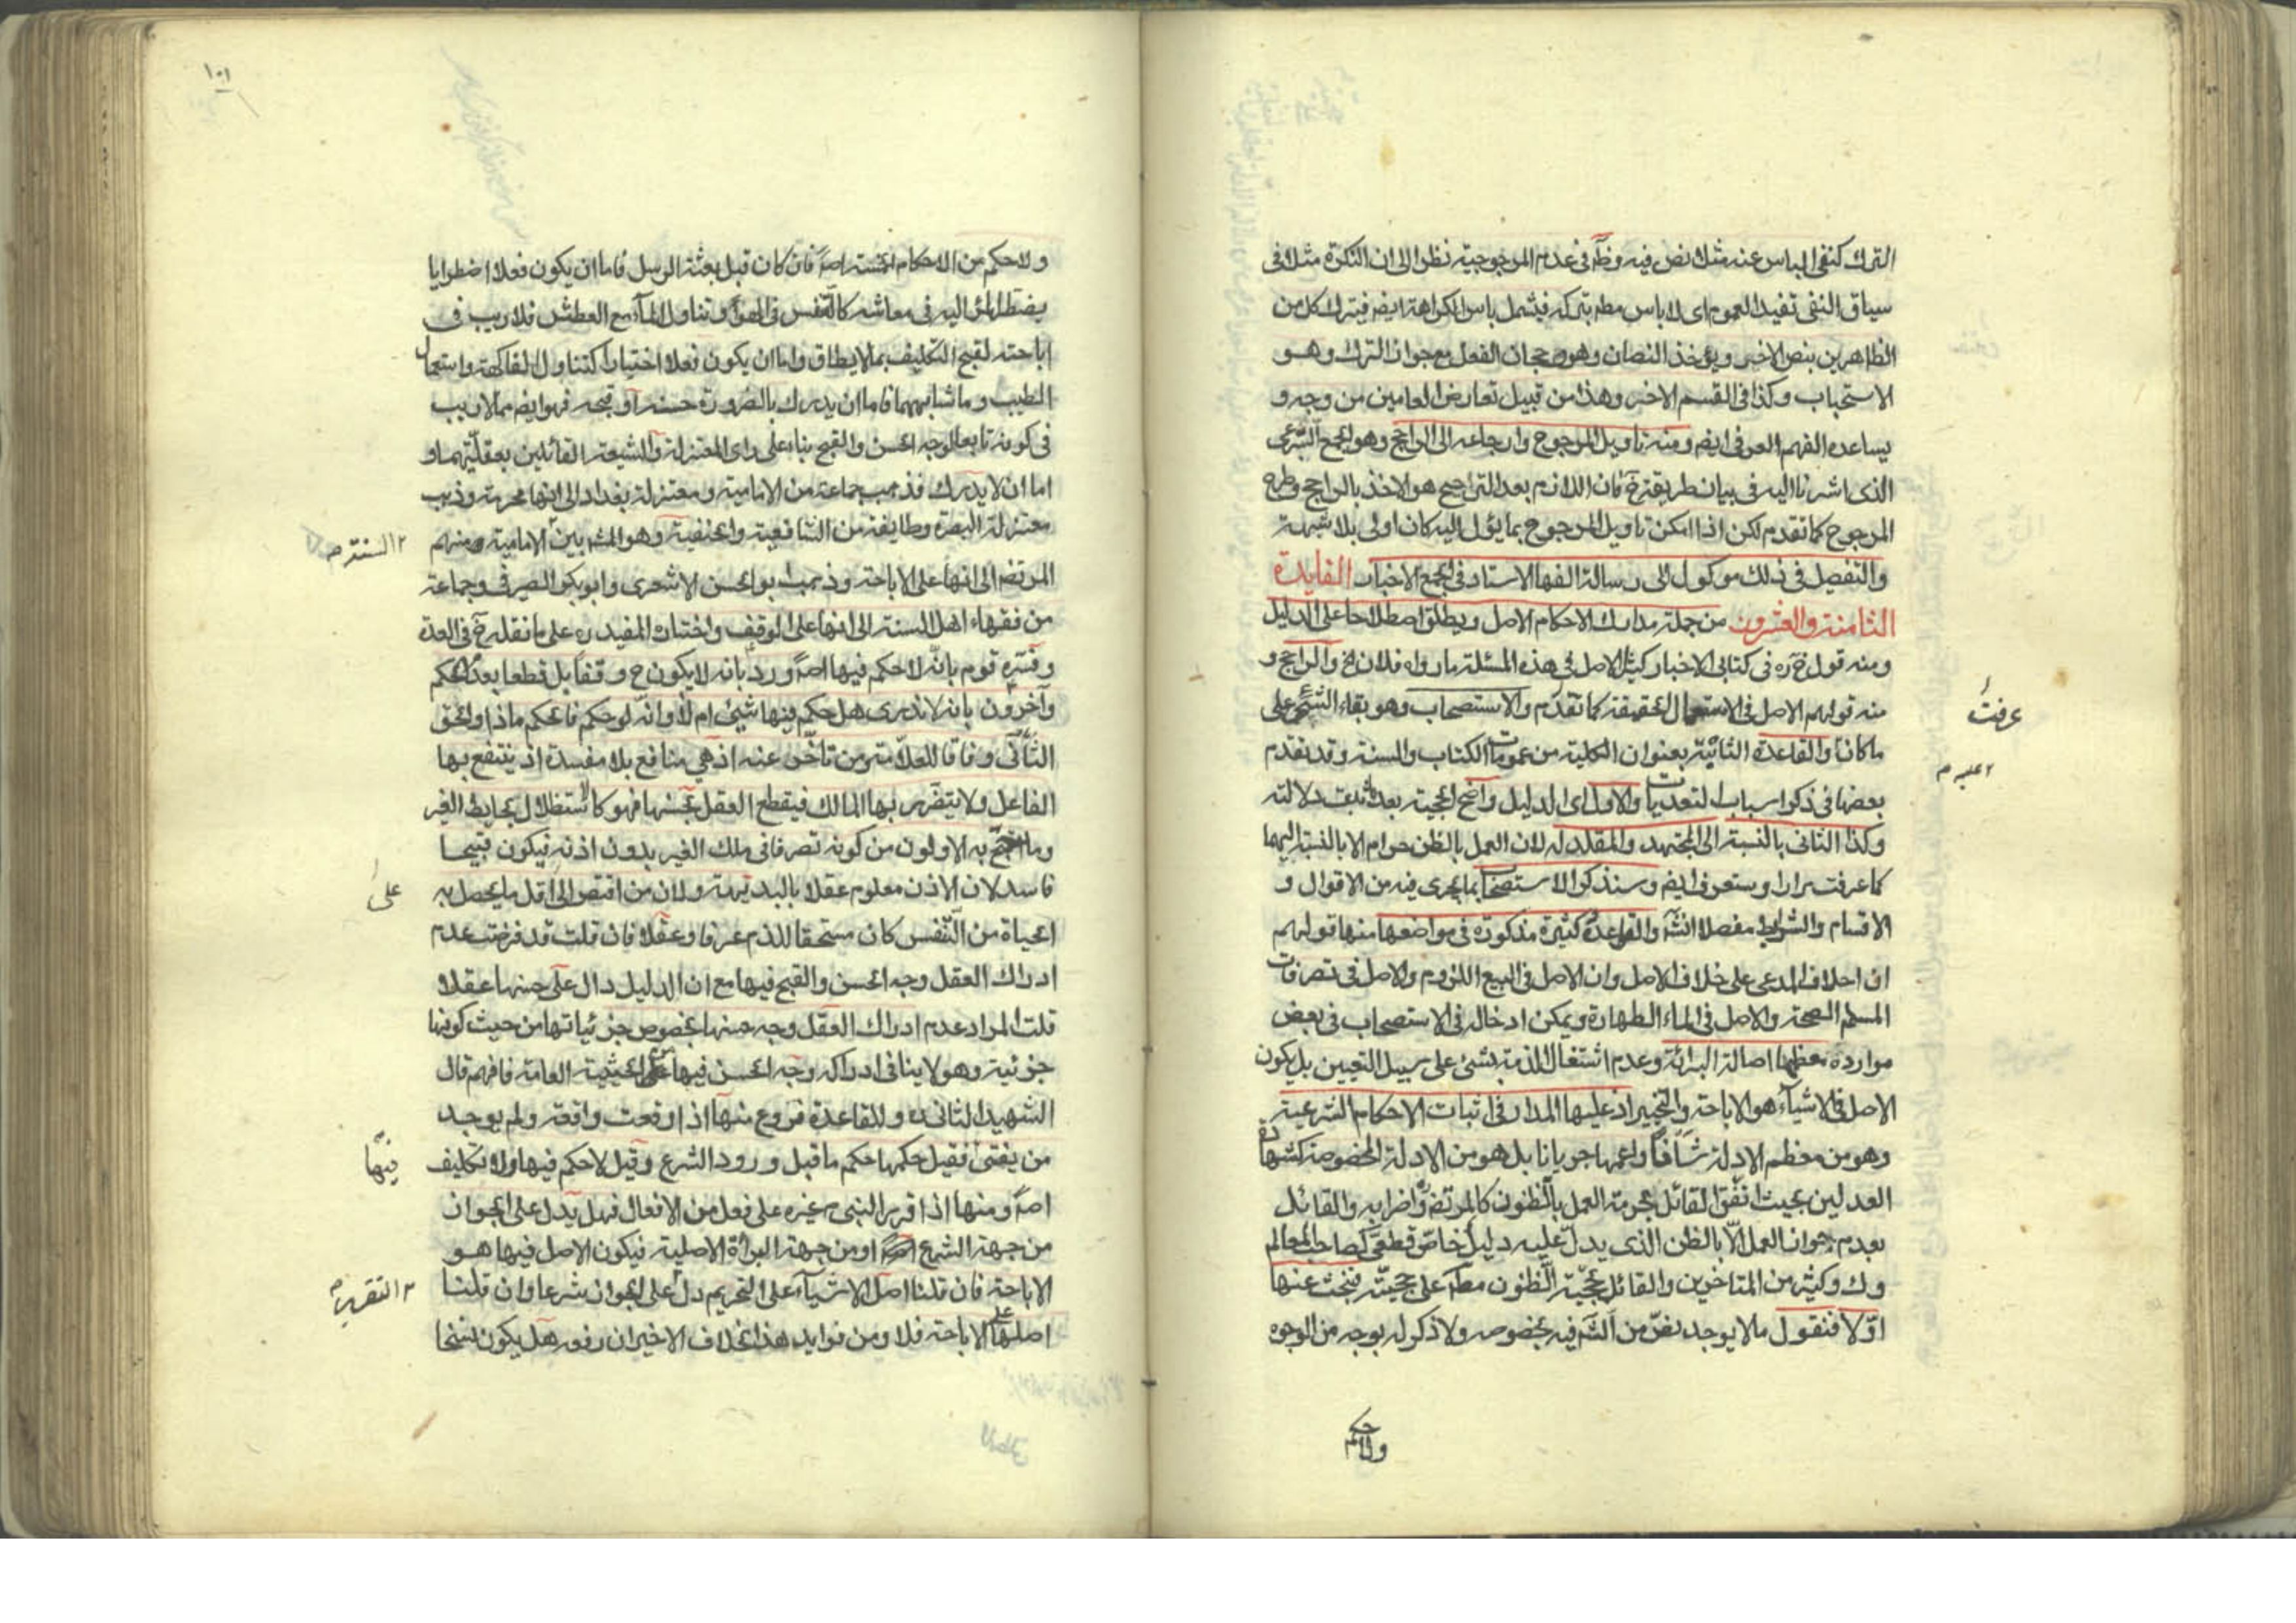 الترك كنفى الباس عنه مثلا نص فيه وظ فى عدم المرجوحية نظرا الى ان النكرة مثلا فى
سياق النفى تفيد العموم اى لا باس مطم بتركه فيشمل باس الكراهة ايضم فيترك كل من
الظاهرين بنص الاخر ويؤخذ النصان وهو رجحان الفعل مع جواز الترك وهو
الاستحباب وكذا فى القسم الاخر وهذا من قبيل تعارض العامين من وجه و
يساعده الفهم العرفى ايضم ومنه تاويل المرجوح وارجاعه الى الراجح وهو الجمع الشرعى
الذى اشرنا اليه فى بيان طريقة خ فان اللازم بعد التراجيح هو الاخذ بالراجح وطرح
المرجوح كما تقدم لكن اذا امكن تاويل المرجوح بما يؤل اليه كان اولى بلا شبهة
والتفصيل فى ذلك موكول الى رسالة الفها الاستاد فى الجمع الاخبار الفايدة
الثامنة والعشرون من جملة مدارك الاحكام الاصل ويطلق اصطلاحا على الدليل
ومنه قول خ ره فى كتابى الاخبار كثيرا الاصل فى هذه المسئلة ما رواه فلان الخ والراجح و
منه قولهم الاصل فى الاستعمال الحقيقة كما تقدم والاستصحاب وهو بقاء الشئ على
ما كان والقاعدة الثابتة بعنوان الكلية من عمومات الكتاب والسنة وقد تقدم
بعضها فى ذكر اسباب التعديات والاول اى الدليل واضح الحجية بعد ثبوت دلالته
وكذا الثانى بالنسبة الى المجتهد والمقلد له لان العمل بالظن حرام الا بالنسبة اليهما
كما عرفت مرارا وستعرف ايضم وسنذكر الاستصحاب بما يجرى فيه من الاقوال و
الاقسام والشرايط مفصلا انش والقواعد كثيرة مذكورة فى مواضعها منها قولهم
ان احلاف المدعى على خلاف الاصل وان الاصل فى البيع اللزوم والاصل فى تصرفات
المسلم الصحة والاصل فى الماء الطهارة ويمكن ادخاله فى الاستصحاب فى بعض
موارده معظمها اصالة البرائة وعدم اشتغال الذمة بشئ على سبيل التعيين بل يكون
الاصل فى الاشياء هو الاباحة والتخيير اذ عليها المدار فى اثبات الاحكام الشرعية
وهو من معظم الادلة شافا واعمها جريانا بل هو من الادلة المخصوصة كشهادة
العدلين بحيث اتفق القائل بحرمة العمل بالظنون كالمرتضى واضرابه والقائل
بعدم جواز العمل الا بالظن الذى يدل عليه دليل خاص قطعى كصاحب المعالم
وك وكثير من المتاخرين والقائل بحجية الظنون مطم على حجيته فنبحث عنها
اولا فنقول ما لا يوجد نص من الش فيه بخصوصه ولا ذكر له بوجه من الوجوه
ولا حكم
عرفت
عليه م
١٠١
ولا حكم من الاحكام الخمسة اصم فان كان قبل بعثة الرسل فاما ان يكون فعلا اضطرايا
يضطر المرؤ اليه فى معاشه كالتنفس فى الهواء وتناول الماء مع العطش فلا ريب فى
اباحته لقبح التكليف بما لا يطاق واما ان يكون فعلا اختياريا كتناول الفاكهة واستعمال
الطيب وما شابههما فاما ان يدرك بالضرورة حسنه او قبحه فهو ايضم مما لا ريب
فى كونه تابعا لوجه الحسن والقبح بناء على راى المعتزلة والشيعة القائلين بعقليتهما و
اما ان لا يدرك فذهب جماعة من الامامية ومعتزلة بغداد الى انها محرمة وذهب
معتزلة البصرة وطايفة من الشافعية والحنفية وهو المش بين الامامية ومنهم
المرتضى الى انها على الاباحة وذهب ابو الحسن الاشعرى وابو بكر الصيرفى وجماعة
من فقهاء اهل السنة الى انها على الوقف واختاره المفيد ره على ما نقله خ فى العدة
وفسره قوم بانه لا حكم فيها اصم ورد بانه لا يكون ح وقفا بل قطعا بعدم الحكم
وآخرون بانه لا ندرى هل حكم فيها شئ ام لا وانه لو حكم فالحكم ماذا والحق
الثانى وفاقا للعلامة ومن تاخر عنه اذ هى منافع بلا مفسدة اذ ينتفع بها
الفاعل ولا يتضرر بها المالك فيقطع العقل بحسنها فهو كالاستظلال بحايط الغير
وما احتج به الاولون من كونه تصرفا فى ملك الغير بدون اذنه فيكون قبيحا
فاسد لان الاذن معلوم عقلا بالبديهة ولان من اقتصر الى اقل ما يحصل به
الحياة من التنفس كان مستحقا للذم عرفا وعقلا فان قلت قد فرضت عدم
ادراك العقل وجه الحسن والقبح فيها مع ان الدليل دال على حسنها عقلا
قلت المراد عدم ادراك العقل وجه حسنها بخصوص جزئياتها من حيث كونها
جزئية وهو لا ينافى ادراكه وجه الحسن فيها على الحيثية العامة فافهم قال
الشهيد الثانى ره وللقاعدة فروع منها اذا وقعت واقعة ولم يوجد
من يفتى فقيل حكمها حكم ما قبل ورود الشرع وقيل لا حكم فيها ولا تكليف
اصم ومنها اذا قرر النبى ص غيره على فعل من الافعال فهل يدل على الجواز
من جهة الشرع او من جهة البراءة الاصلية فيكون الاصل فيها هو
الاباحة فان قلنا اصل الاشياء على التحريم دل على الجواز شرعا وان قلنا
اصلها على الاباحة فلا ومن فوايد هذا الخلاف الاخير ان رفعه هل يكون نسخا
السنة صح
على
فيها
التقرير م